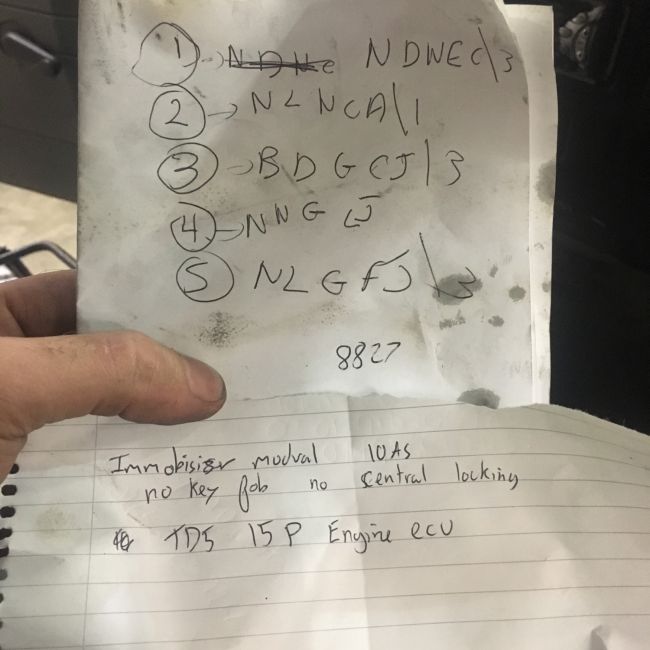 1 → NDNE NDWEC\3
2 → NLNCA\1
3 → BDGCJ\3
4 → NNG
5 NLGFJ\3
8827
Immobisisr modual 10AS
no key fob no central locking
TD5 15P Engine ecu